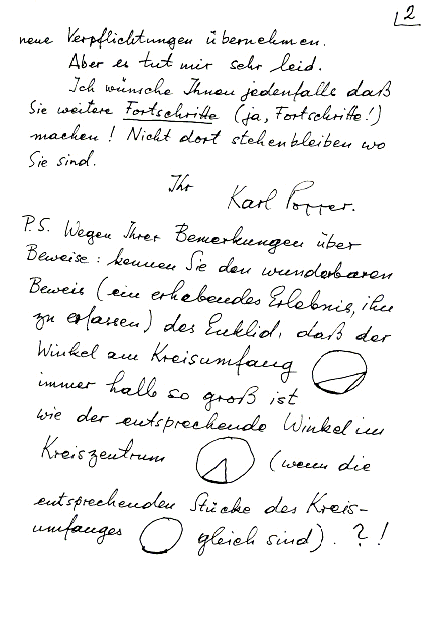 2
neue Verpflichtungen übernehmen.
Aber es tut mir sehr leid.
Ich wünsche Ihnen jedenfalls daß
Sie weitere Fortschritte (ja, Fortschritte!)
machen! Nicht dort stehenbleiben wo
Sie sind.
Ihr
Karl Popper.
P.S. Wegen Ihrer Bemerkungen über
Beweise: kennen Sie den wunderbaren
Beweis (ein erhebendes Erlebnis, ihn
zu erfassen) des Euklid, daß der
Winkel am Kreisumfang
immer halb so groß ist
wie der entsprechende Winkel im
Kreiszentrum (wenn die
entsprechenden Stücke des Kreis-
umfanges gleich sind). ?!